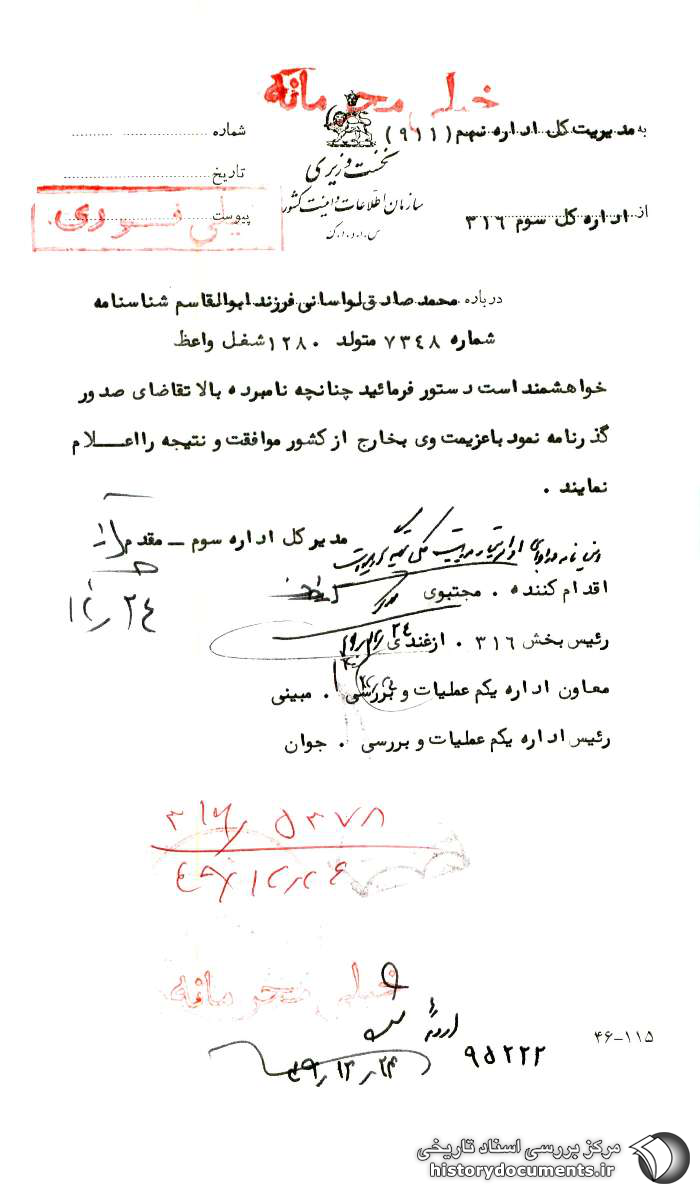 خیلی محرمانه
به مدیریت کل اداره نهم (۹۱۱)
شماره
نخست وزیری
تاریخ
سازمان اطلاعات و امنیت کشور
س.ا.و.ا.ک
پیوست
خیلی فوری
از اداره کل سوم ۳۱۶
درباره محمد صادق لواسانی فرزند ابوالقاسم شناسنامه
شماره ۷۳۴۸ متولد ۱۲۸۰ شغل واعظ
خواهشمند است دستور فرمائید چنانچه نامبرده بالا تقاضای صدور
گذرنامه نمود باعزیمت وی بخارج از کشور موافقت و نتیجه رااعلام
نمایند .
مدیر کل اداره سوم – مقدم
۱۲/۲۴
اقدام کننده . مجتبوی
رئیس بخش ۳۱۶ . ازغندی
معاون اداره یکم عملیات و بررسی . مبینی
رئیس اداره یکم عملیات و بررسی . جوان
۳۱۶/۵۲۷۸
خیلی محرمانه
۹۵۲۲۲
۴۹/۱۲/۲۴
۴۶-۱۱۵
مرکز بررسی اسناد تاریخی
historydocuments.ir